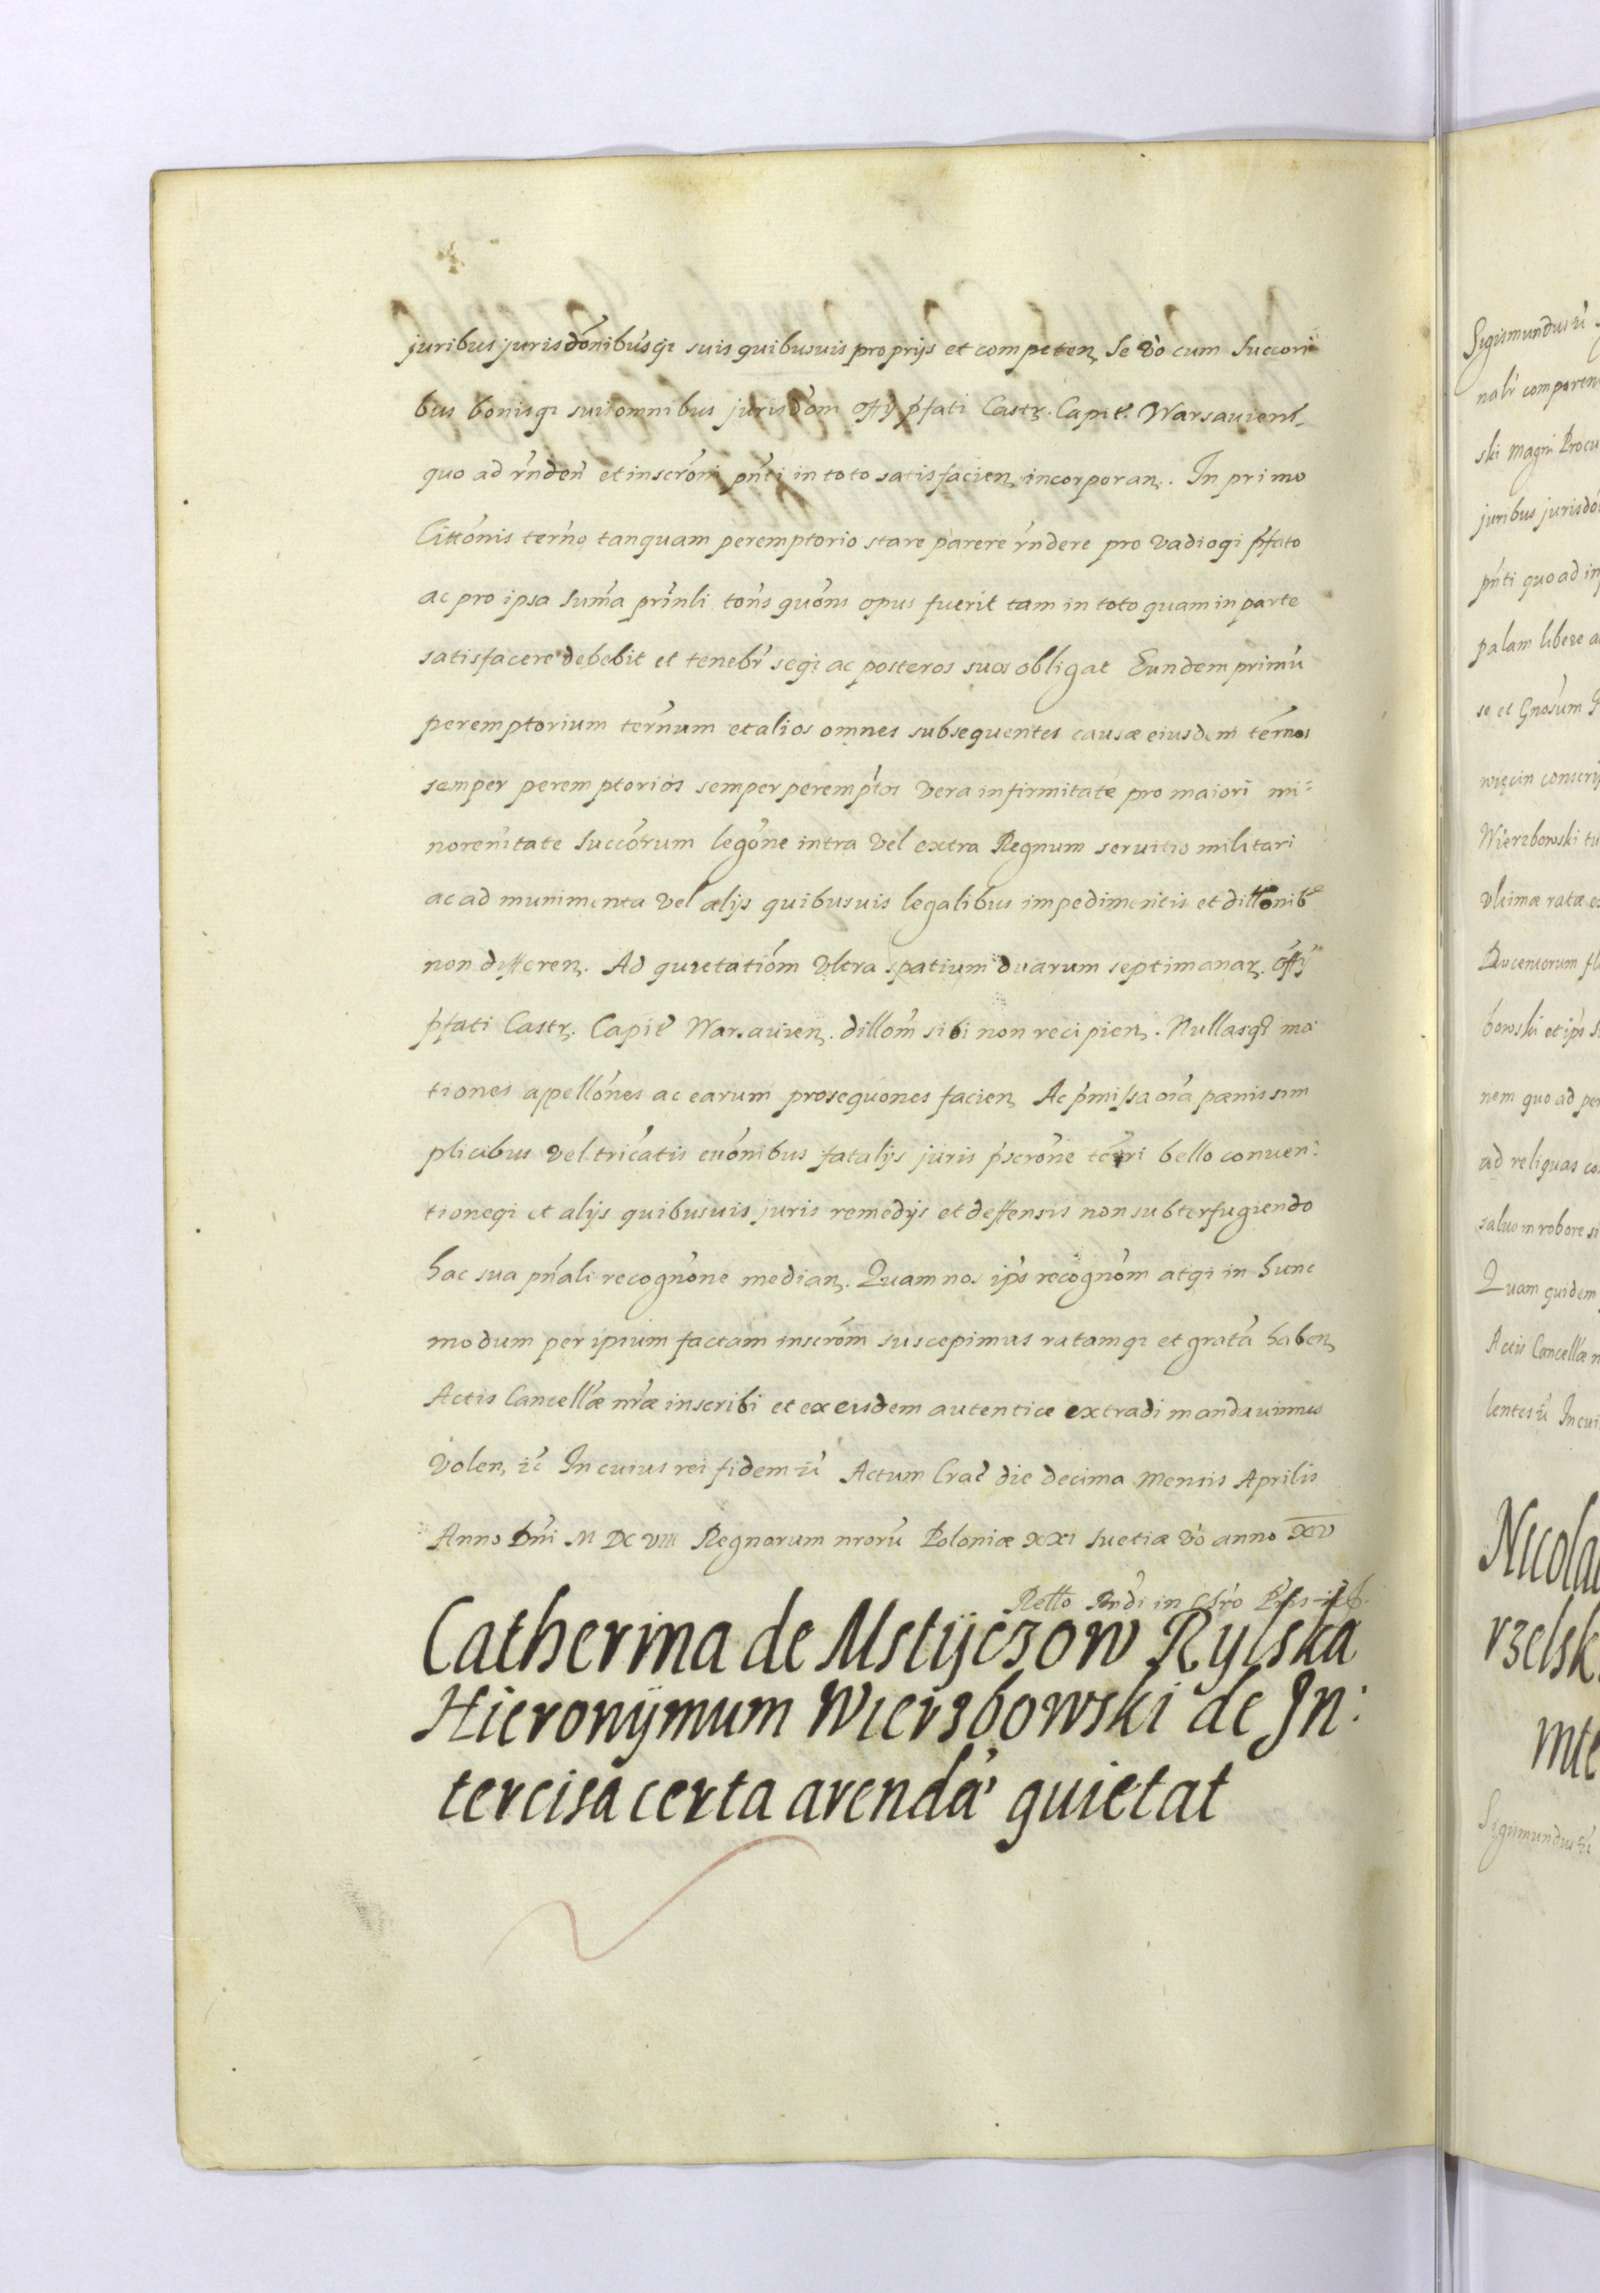 juribus jurisdõnibusq₃ suis quibusuis proprijs et competen. Se v̀o cum Succori
bus bonisq₃ suis omnibus jurisdõm offy p̃fati Castr. Capit. Warsauien.
quo ad rñdeñ et inscrõni pñti in toto satisfacien. incorporan. In primo
Cittõnis terño tanquam peremptorio stare parere rñdere pro vadioq₃ p̃fato
ac pro ipsa sum̃a prinˀli tоñs quõns opus fuerit tam in toto quam in parte
satisfacere debebit et tenebr̃ seq₃ ac posteros suos obligat Eundem primũ
peremptorium term̃num et alios omnes subsequentes causæ eiusdem term̃nos
semper peremptorios semper perempt̃os vera infirmitate pro maiori mi:
noreñitate Succõrum legõne intra vel extra Regnum seruitio militari
ac ad munimenta vel alijs quibusuis legalibus impedimentis et dillõnib9
non differen. Ad quietatiõm vltra spatium duarum septimanar. offy
p̃fati Castr. Capit Warsauien. dillõm sibi non recipien. Nullasq₃ mo
tiones apellõnes ac earum prosequõnes facien. Ac p̃missa oĩa pænis sim
plicibus vel tricatis euõnibus fatalijs juris p̃scrõne terri bello conuen:
tioneq₃ et alijs quibusuis juris remedijs et deffensis non subterfugiendo
hac sua pñali recognõne median. Quam nos ip̃s recognõm atq₃ in hunc
modum per ipsum factam inscrõm suscepimus ratamq₃ et gratã haben.
Actis Cancellæ nr̃æ inscribi et ex eisdem autentice extradi mandauimus
Volen. ec̃ In cuius rei fidem ec̃ Actum Crac̃ die decima Mensis Aprilis
Anno Dñi M DC VIII Regnorum nrorũ Poloniæ XXI Suetiæ v̀o anno XV
Catherina de Mstÿczow Rylska
Hieronÿmum Wierzbowski de In:
tercisa certa arendã quietat
Sigismundus ec̃
ski Magni Procu
palam libere a
Wierzbowski tu
vltimæ ratæ e
Ducentorum fl
nem quo ad per
ad reliquas co
saluo in robore
Quam quidem
Actis Cancellæ n
lentes ec̃ In cui
Nicola
rzelsk
Sigismundus ec̃